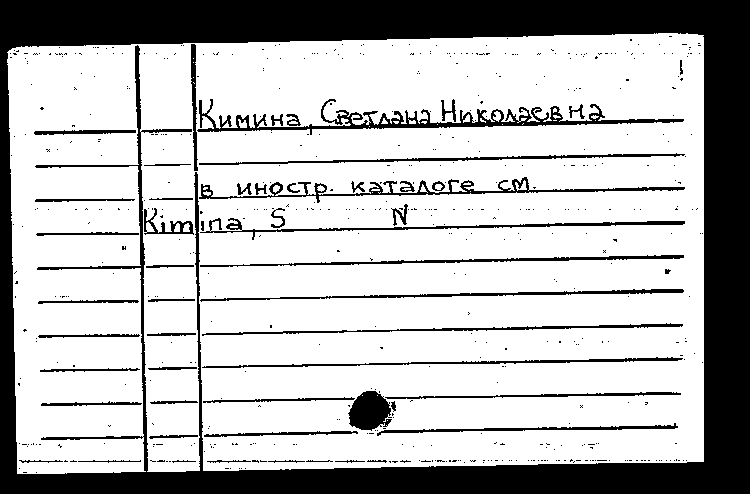 Кимина, Светлана Николаевна
в иностр. каталоге см.
Kimina, S N